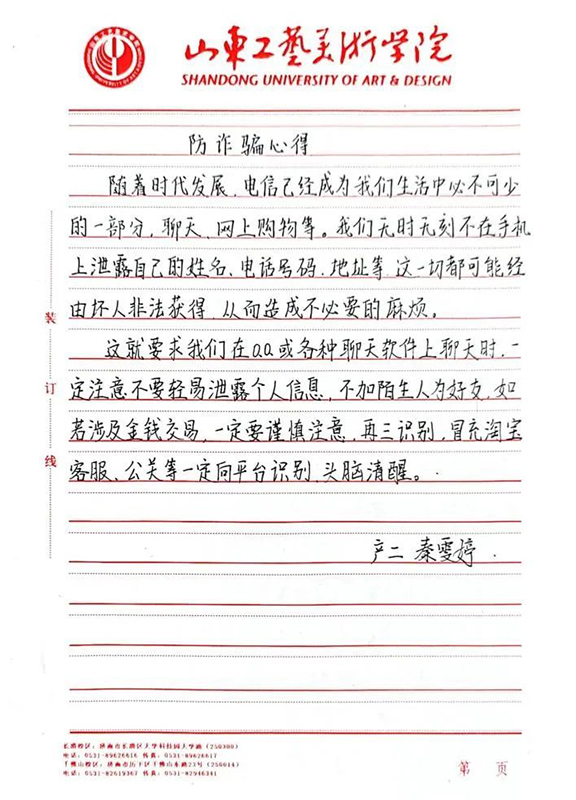 山東工藝美術學院
SHANDONG UNIVERSITY OF ART & DESIGN
防诈骗心得
随着时代发展、电信已经成为我们生活中必不可少
的一部分，聊天、网上购物等。我们无时无刻不在手机
上泄露自己的姓名、电话号码、地址等 这一切都可能经
由坏人非法获得、从而造成不必要的麻烦。
这就要求我们在QQ或各种聊天软件上聊天时,一
定注意不要轻易泄露个人信息，不加陌生人为好友，如
若涉及金钱交易，一定要谨慎注意，再三识别，冒充淘宝
客服、公关等一定向平台识别、头脑清醒。
产二 秦雯婷
装
订
线
长清校区：济南市长清区大学科技园大学路（250300）
电话：0531-89626616 传真：0531-89626617
千佛山校区：济南市历下区千佛山东路23号（250014）
电话：0531-82619367 传真：0531-82946341
第 页